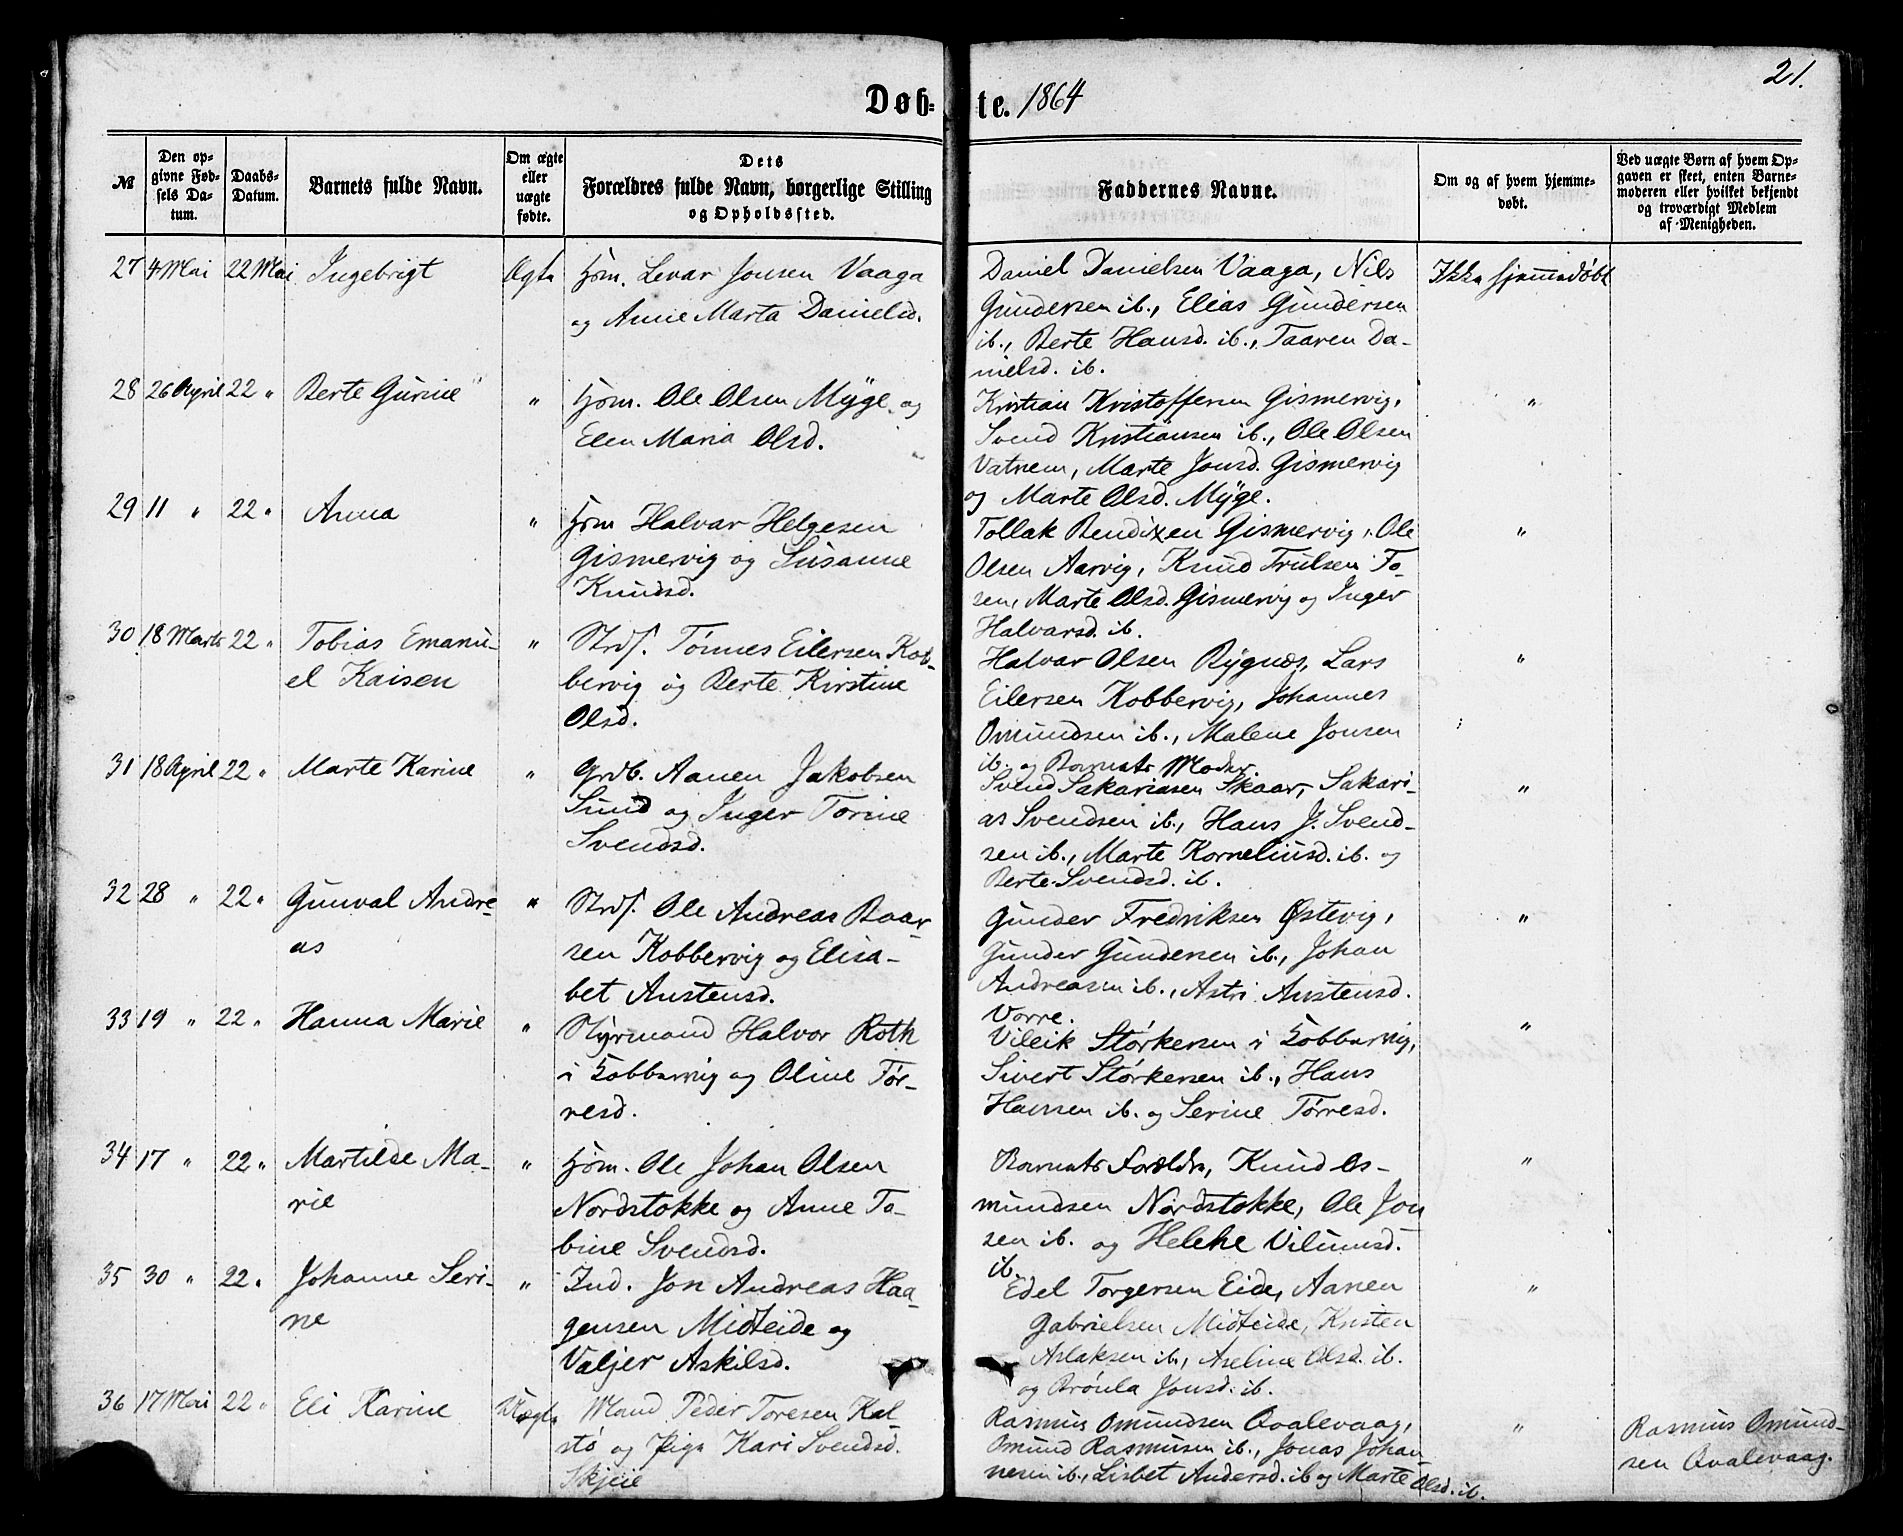 21.
Døb-te. 1864
№
Den op-
givne Fød-
sels Da-
tum.
Daabs-
Datum.
Barnets fulde Navn.
Om ægte
eller
uægte
fødte.
Dets
Forældres fulde Navn, borgerlige Stilling
og Opholdssted.
Faddernes Navne.
Om og af hvem hjemme-
døbt.
Ved uægte Børn af hvem Op-
gaven er skeet, enten Barne-
moderen eller hvilket bekjendt
og troværdigt Medlem
af Menigheden.
27 4 Mai 22 Mai Ingebrigt Ægte Hjm. Levar Jonsen Vaaga
og Anne Marta Danielsd.
Daniel Danielsen Vaaga, Nils
Gundersen ib., Elias Gundersen
ib., Berte Hansd. ib., Taaren Da-
nielsd. ib.
Ikke hjemmedøbt
28 26 April 22 " Berte Gurine " Hjm. Ole Olsen Myge og
Elen Maria Olsd.
Kristian Kristoffersen Gismervig,
Svend Kristiansen ib., Ole Olsen
Vatnem, Marte Jonsd. Gismervig
og Marte Olsd. Myge.
"
29 11 " 22 " Anna " Hjm Halvar Helgesen
Gismervig og Susanne
Knudsd.
Tollak Bendixen Gismervig, Ole
Olsen Aarvig, Knud Trulsen Fo-
sen, Marte Olsd. Gismervig og Inger
Halvarsd. ib.
"
30 18 Marts 22 " Tobias Emanu-
el Kaisen
" Strds. Tönnes Eilersen Kob-
bervig og Berte Kirstine
Olsd.
Halvar Olsen Bygnæs, Lars
Eilersen Kobbervig, Johannes
Omundsen ib., Malene Jonsen
ib. og Barnets Moder
"
31 18 April 22 " Marte Karine " Grdb. Aanen Jakobsen
Sund og Inger Torine
Svendsd.
Svend Sakariasen Skaar, Sakari-
as Svendsen ib., Hans J. Svend-
sen ib., Marte Korneliusd. ib. og
Berte Svendsd. ib.
"
32 28 " 22 " Gunval Andre-
as
" Strds. Ole Andreas Baar-
sen Kobbervig og Elisa-
bet Austensd.
Gunder Fredriksen Østevig,
Gunder Gundersen ib., Johan
Andreasen ib., Astri Austensd.
Vorre.
"
33 19 " 22 " Hanna Marie " Styrmand Halvor Roth
i Kobbervig og Oline Tör-
resd.
Vileik Störkersen i Kobbervig,
Sivert Störkersen ib., Hans
Hansen ib. og Serine Törresd.
"
34 17 " 22 " Martilde Ma-
rie
" Hjm. Ole Johan Olsen
Nordstokke og Anne To-
bine Svendsd.
Barnets Forældre, Knud Os-
mundsen Nordstokke, Ole Jon
sen ib. og Helene Vilumsd.
ib.
"
35 30 " 22 " Johanne Seri-
ne
" Ind. Jon Andreas Haa-
gensen Midteide og
Valjer Askilsd.
Edel Torgersen Eide, Aanen
Gabrielsen Midteide, Kristen
Aslaksen ib., Aseline Olsd. ib.
og Brönla Jonsd. ib.
"
36 17 Mai 22 " Eli Karine Uægte Mand Peder Toresen Kal-
stö og Pige Kari Svendsd.
Skjeie
Rasmus Omundsen Qvalevaag,
Omund Rasmusen ib., Jonas Johan-
nesen ib., Lisbet Andersd. ib og Marte Olsd. ib.
"
Rasmus Omund-
sen Qvalevaag.